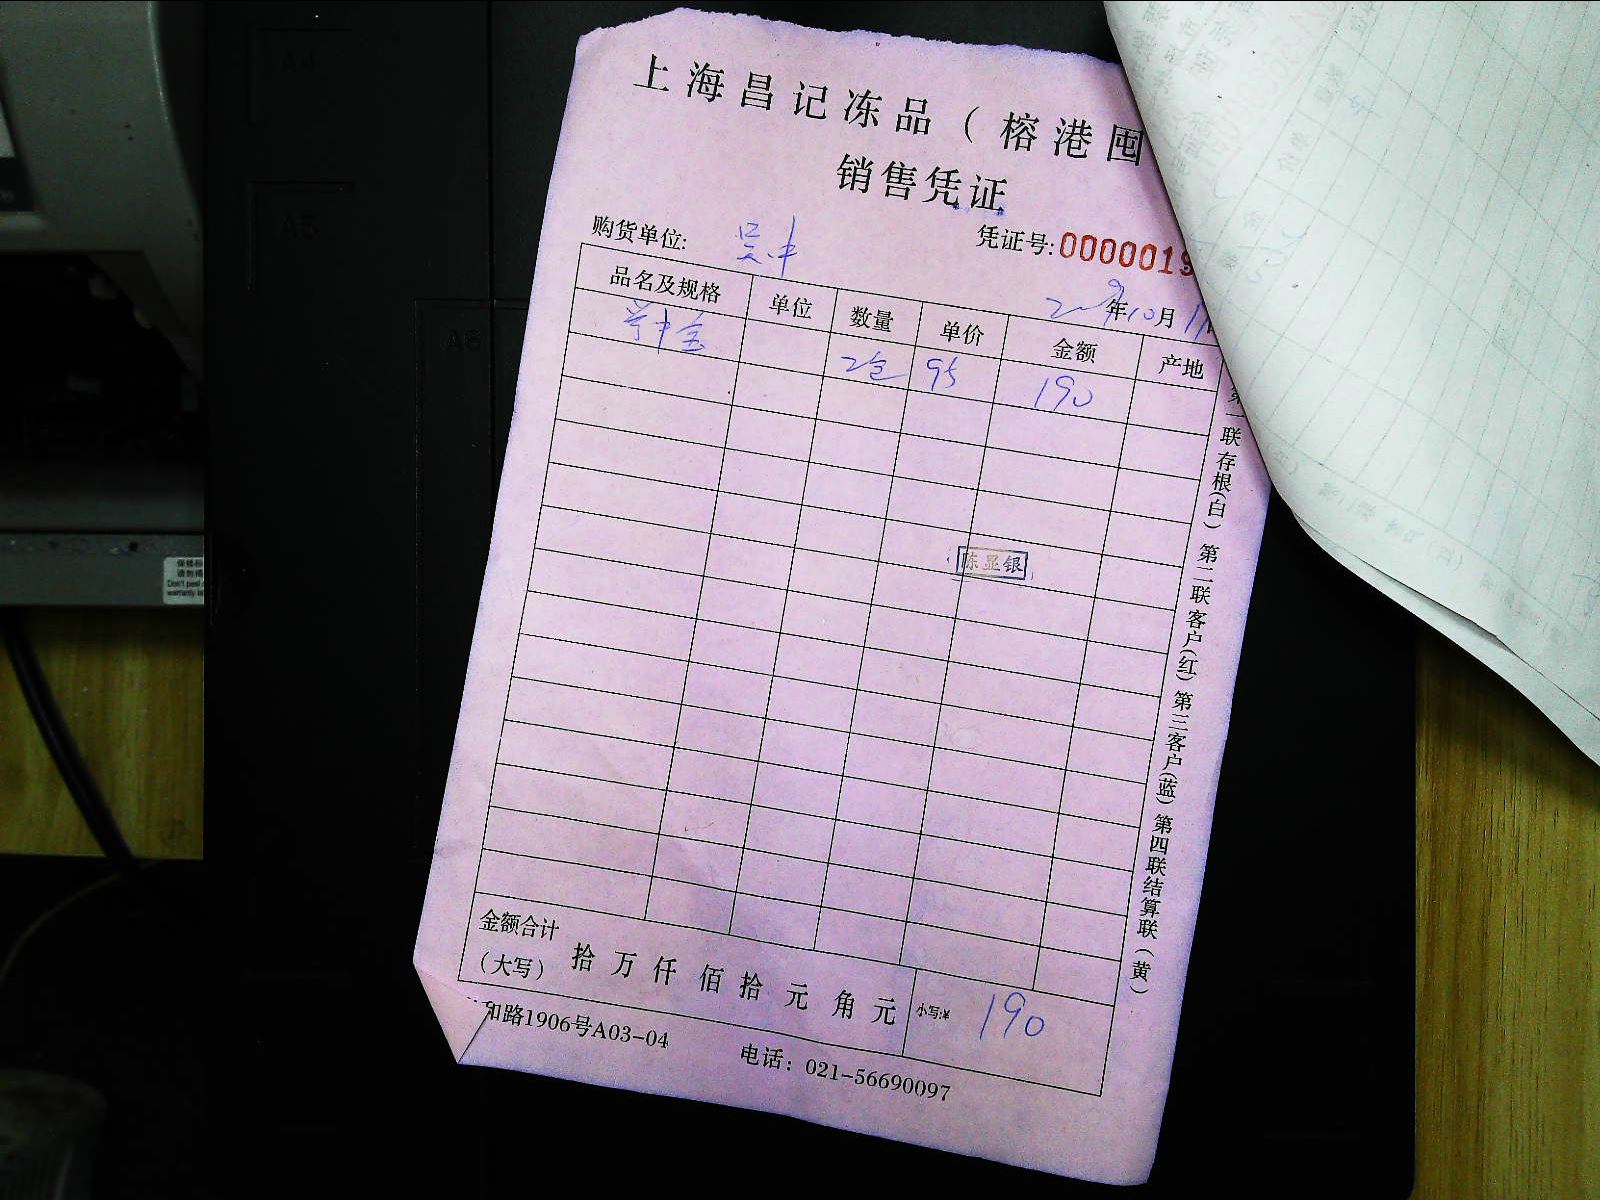 上海昌记冻品（榕港囤
销售凭证
购货单位: 吴中
凭证号:0000019
年10月11日
品名及规格 单位 数量 单价 金额 产地
2包 95 190
陈显银
金额合计（大写） 拾 万 仟 佰 拾 元 角 元 小写:¥ 190
和路1906号A03-04 电话：021-56690097
第一联存根(白) 第二联客户(红) 第三客户(蓝) 第四联结算联(黄)
A4
A5
A6